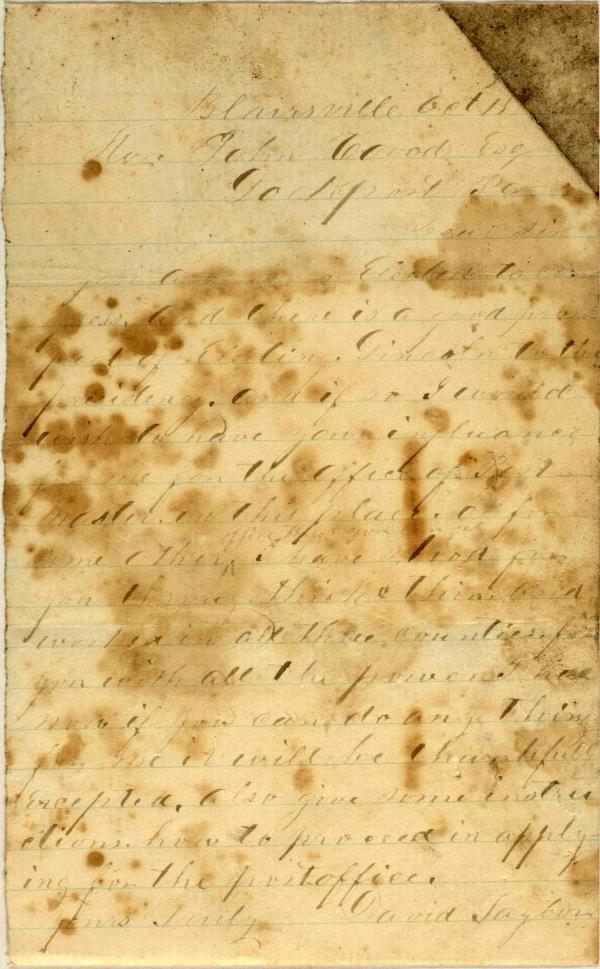 Blairsville Oct 1
Hon. John Covod Esq
Lockport Pa
Dear Sir
you Elected to con
gress. And there is a good pros
pect of Electing Lincoln to the
presidency. and if so I would
wish to have your influance
for me for the office of Post
master in this place. or for
some other I have stood for
you throug thick & thin and
worked in all three counties for
you with all the power I had
now if you can do any thing
for me it will be thankfull
excepted. Also give some instru
ctions how to proceed in apply-
ing for the postoffice.
yours Truly David Taylor